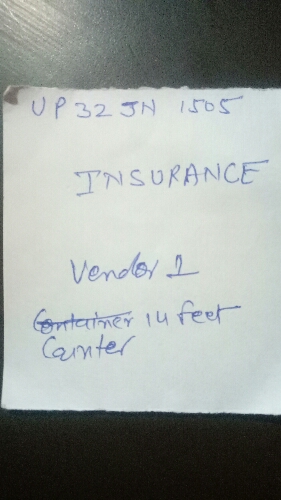 UP 32 JN 1505
INSURANCE
Vendor 1
Container 14 feet
Canter